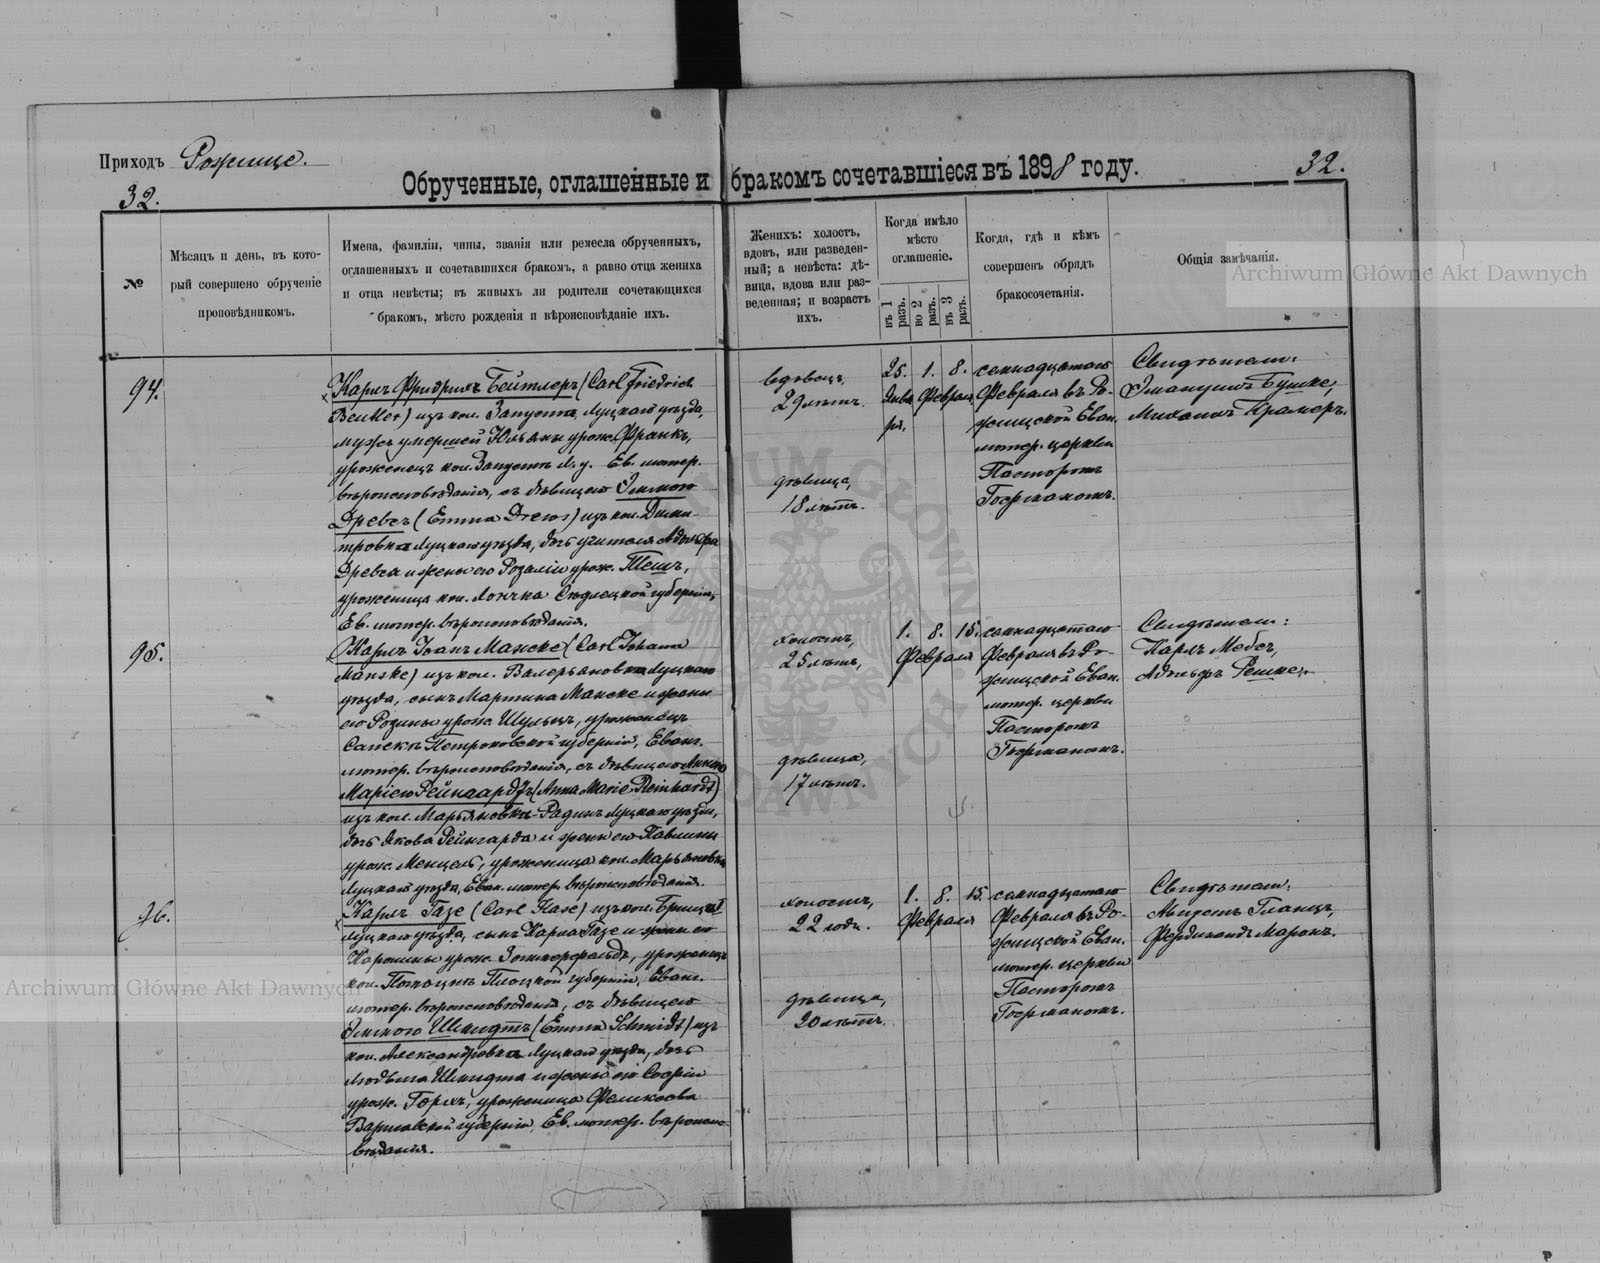 Приходъ Рожище.
32.
Обрученные, оглашенные и бракомъ сочетавшіеся въ 1898 году.
32.
№
Мѣсяцъ и день, въ кото-
рый совершено обрученіе
проповѣдникомъ.
Имена, фамиліи, чины, званія или ремесла обрученныхъ,
оглашенныхъ и сочетавшихся бракомъ, а равно отца жениха
и отца невѣсты; въ живыхъ ли родители сочетающихся
бракомъ, мѣсто рожденія и вѣроисповѣданіе ихъ.
Женихъ: холостъ,
вдовъ, или разведен-
ный; а невѣста: дѣ-
вица, вдова или раз-
веденная; и возрастъ
ихъ.
Когда имѣло
мѣсто
оглашеніе.
въ 1 разъ.
во 2 разъ.
въ 3 разъ.
Когда, гдѣ и кѣмъ
совершенъ обрядъ
бракосочетанія.
Общія замѣчанія.
Archiwum Główne Akt Dawnych
94.
Карлъ Фридрихъ Бейтлеръ (Carl Friedrich
Beutler) изъ кол. Запуста Луцкаго уѣзда,
мужъ умершей Юльяны урож. Франкъ,
уроженецъ кол. Запустъ Л. у. Ев. лютер.
вѣроисповѣданія, съ дѣвицею Эммою
Древсъ (Emma Drews) изъ кол. Дми-
тровка Луцкаго уѣзда, дочь учителя Адольфа
Древса и жены его Розаліи урож. Тешъ,
уроженица кол. Лончка Сѣдлецкой губерніи,
Ев. лютер. вѣроисповѣданія.
вдовецъ,
29 лѣтъ.
дѣвица,
18 лѣтъ.
25. 1. 8.
Янва Февраля
ря,
семнадцатаго
Февраля въ Ро-
жищской Еван.
лютер. церкви
Пасторомъ
Госрманомъ.
Свидѣтели:
Эмануилъ Бушке,
Михаилъ Крамеръ.
95.
Карлъ Іоанъ Манске (Carl Johann
Manske) изъ кол. Валерьяновка Луцкаго
уѣзда, сынъ Мартина Манске и жены
его Розины урож. Шульцъ, уроженецъ
Петроковской губерніи, Еванг.
лютер. вѣроисповѣданія, съ дѣвицею Анною
Маріею Рейнгардтъ (Anna Marie Reinhardt)
изъ кол. Марьяновка-Радинъ Луцкаго уѣзда,
дочь Якова Рейнгарда и жены его Павлины
урож. Менцель, уроженица кол. Марьяновка
Луцкаго уѣзда, Еван. лютер. вѣроисповѣданія.
холостъ,
25 лѣтъ,
дѣвица,
17 лѣтъ.
1. 8. 15.
Февраля
семнадцатаго
Февраля въ Ро-
жищской Еван.
лютер. церкви
Пасторомъ
Госрманомъ.
Свидѣтели:
Карлъ Мебсъ,
Адольфъ Решке.
96.
Карлъ Газе (Carl Hase) изъ кол.
Луцкаго уѣзда, сынъ Карла Газе и жены его
Каролины урож. Зоммерфельдъ, уроженецъ
кол. Плоцкой губерніи, Еванг.
лютер. вѣроисповѣданія, съ дѣвицею
Эммою Шмидтъ (Emma Schmidt) изъ
кол. Александровка Луцкаго уѣзда, дочь
Людвига Шмидта и жены его Софіи
урож. уроженица
Варшавской губерніи, Ев. лютер. вѣроиспо-
вѣданія.
холостъ,
22 года.
дѣвица,
20 лѣтъ.
1. 8. 15.
Февраля
семнадцатаго
Февраля въ Ро-
жищской Еван.
лютер. церкви
Пасторомъ
Госрманомъ.
Свидѣтели:
Августъ Гланцъ,
Фердинандъ Марокъ.
Archiwum Główne Akt Dawnych